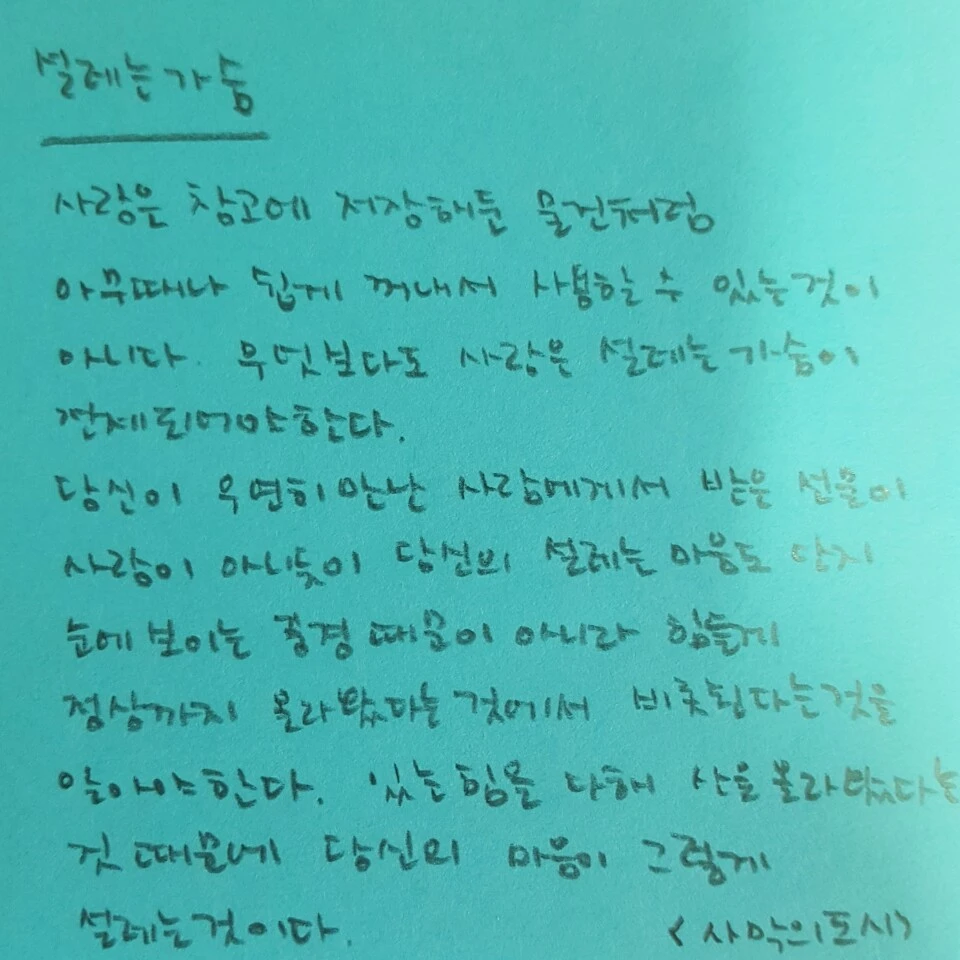 설레는 가슴
사랑은 창고에 저장해둔 물건처럼
아무때나 쉽게 꺼내서 사용할 수 있는것이
아니다. 무엇보다도 사랑은 설레는 가슴이
전제되어야한다.
당신이 우연히 만난 사람에게서 받은 선물이
사랑이 아니듯이 당신의 설레는 마음도 단지
눈에 보이는 풍경 때문이 아니라 힘들게
정상까지 올라왔다는 것에서 비롯된다는것을
알아야한다. 있는 힘을 다해 산을 올라왔다는
것 때문에 당신의 마음이 그렇게
설레는것이다. <사막의도시>